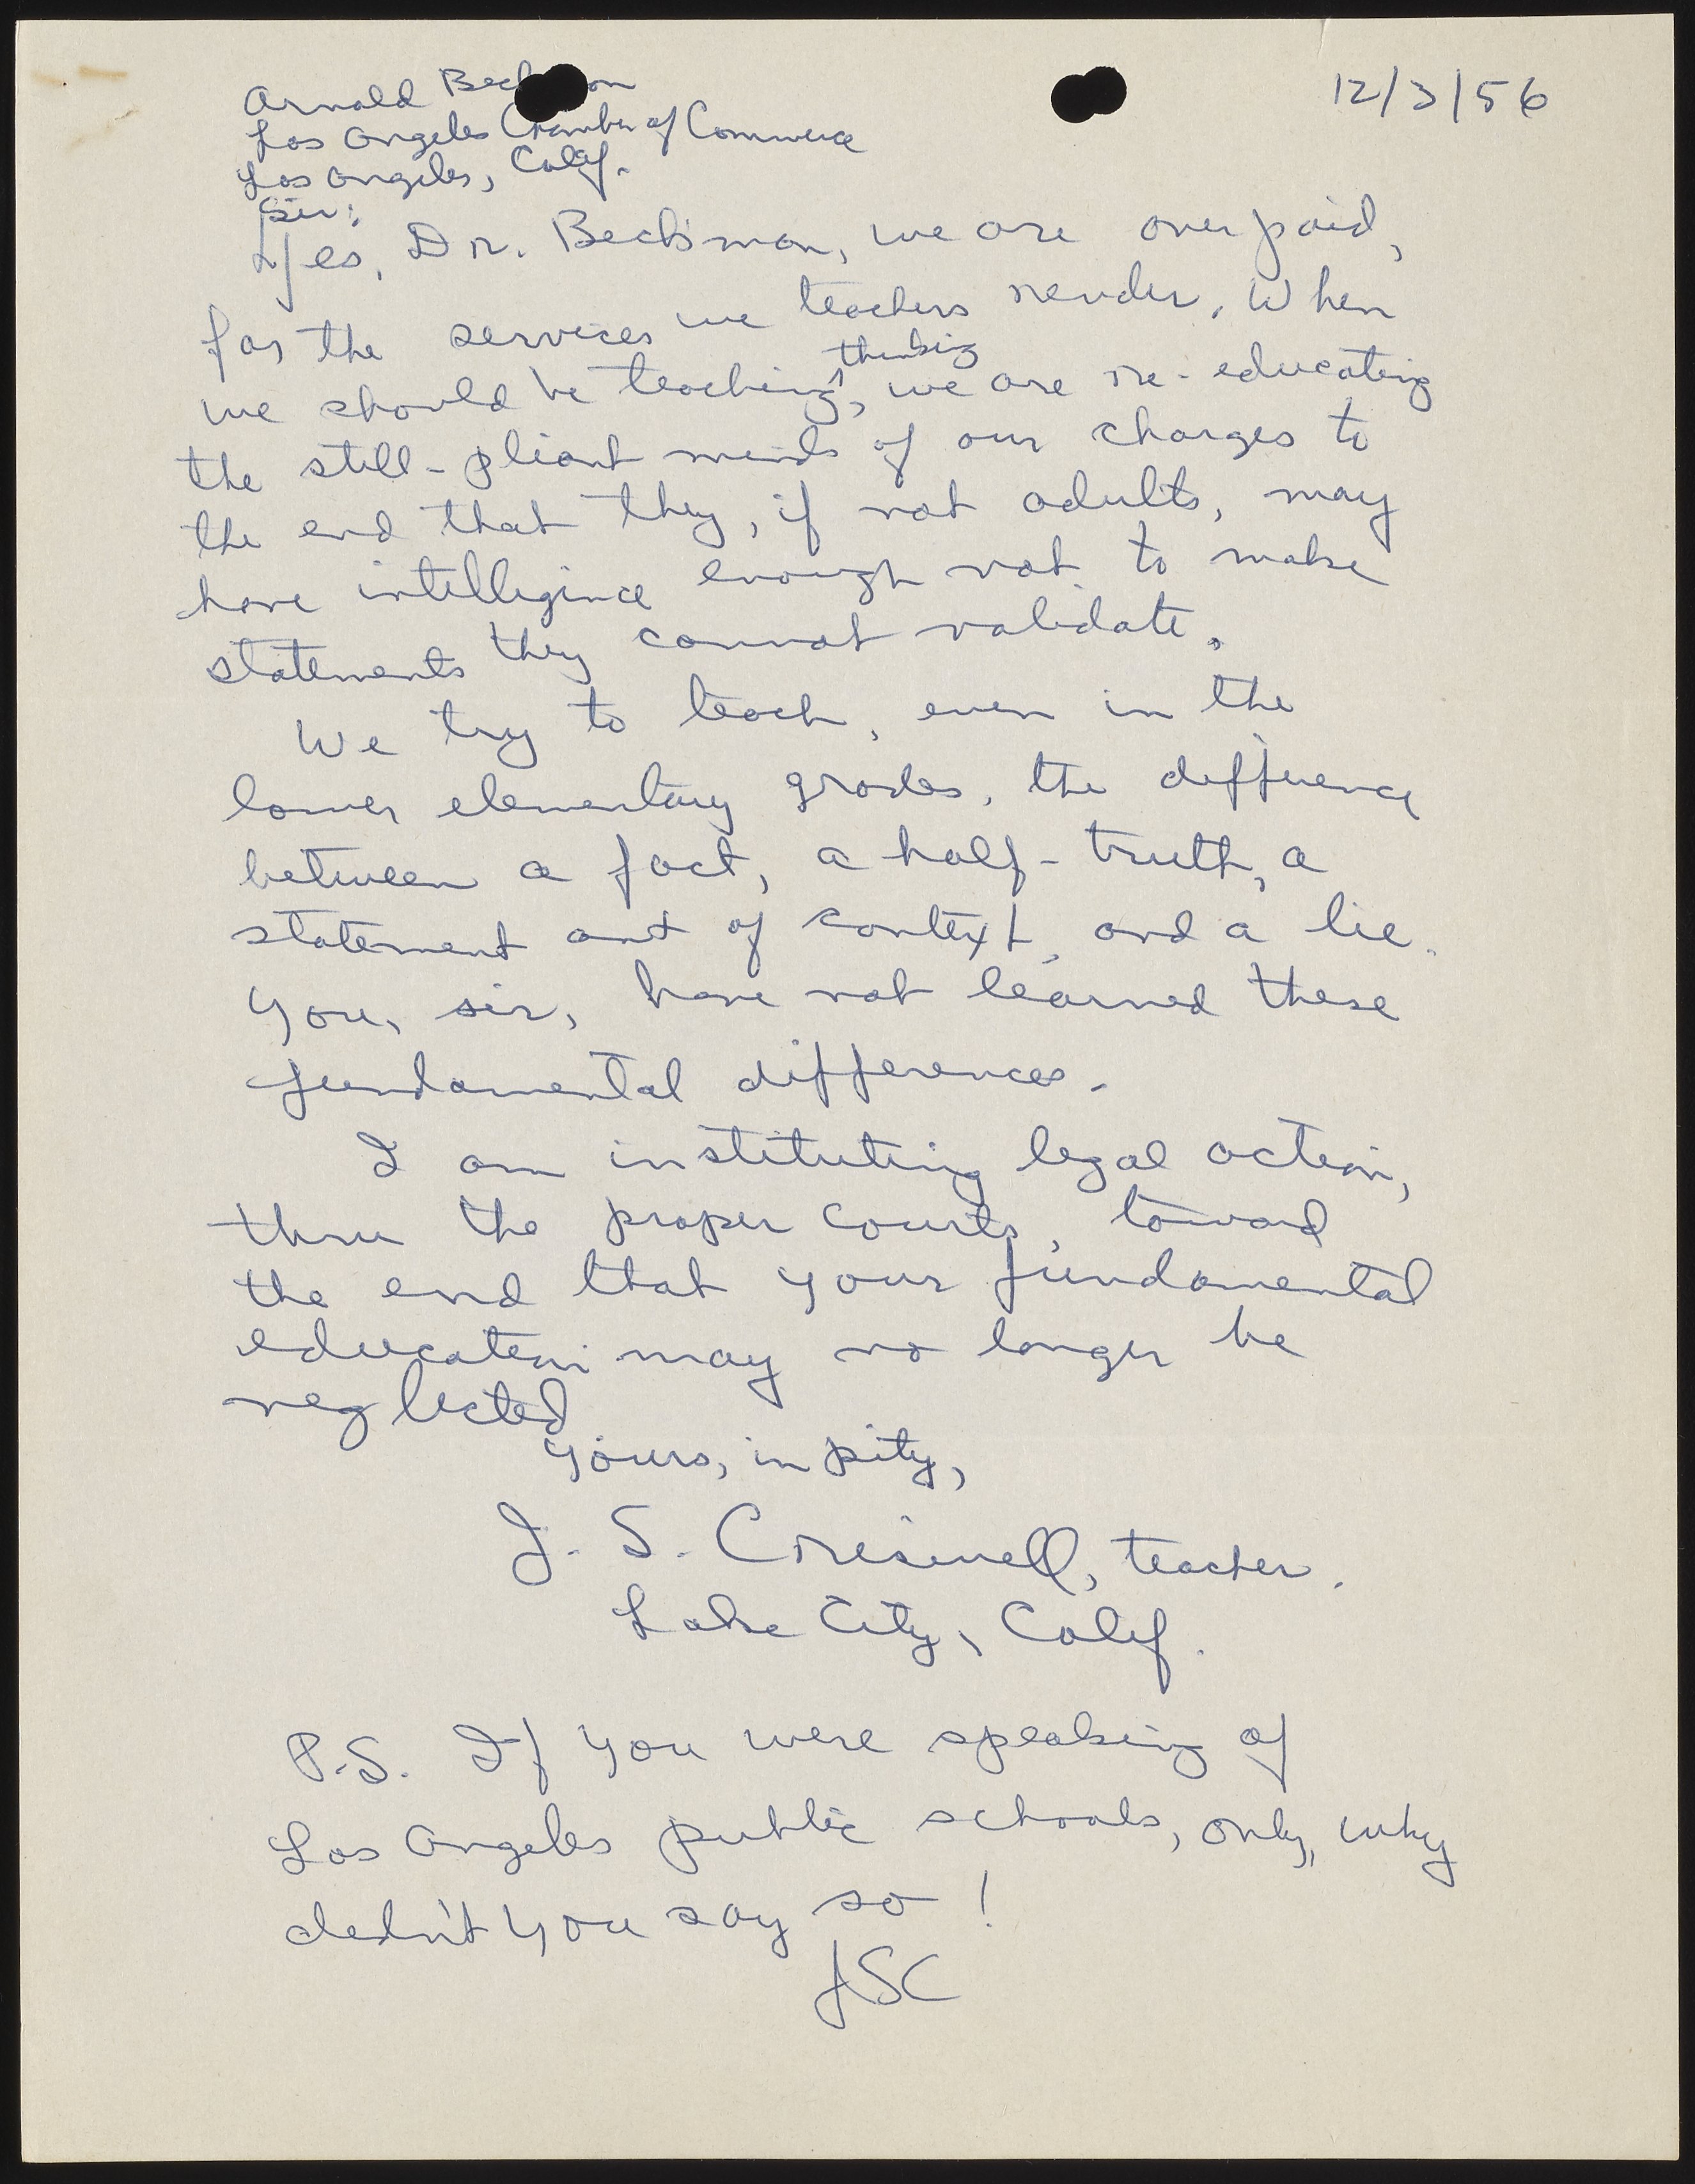 12/3/56
Arnold Beckman
Los Angeles Chamber of Commerce
Los Angeles, Calif.
Sir:
Yes, Dr. Beckman, we are overpaid,
for the services we teachers render. When
we should be teaching thinking, we are re-educating
the still-pliant minds of our charges to
the end that they, if not adults, may
have intelligence enough not to make
statements they cannot validate.
We try to teach, even in the
lower elementary grades, the difference
between a fact, a half-truth, a
statement out of context, and a lie.
You, sir, have not learned these
fundamental differences.
I am instituting legal action,
thru the proper courts, toward
the end that your fundamental
education may no longer be
neglected
Yours, in pity,
J. S. Criswell, teacher.
Lake City, Calif.
P.S. If you were speaking of
Los Angeles public schools, only, why
didn't you say so!
JSC